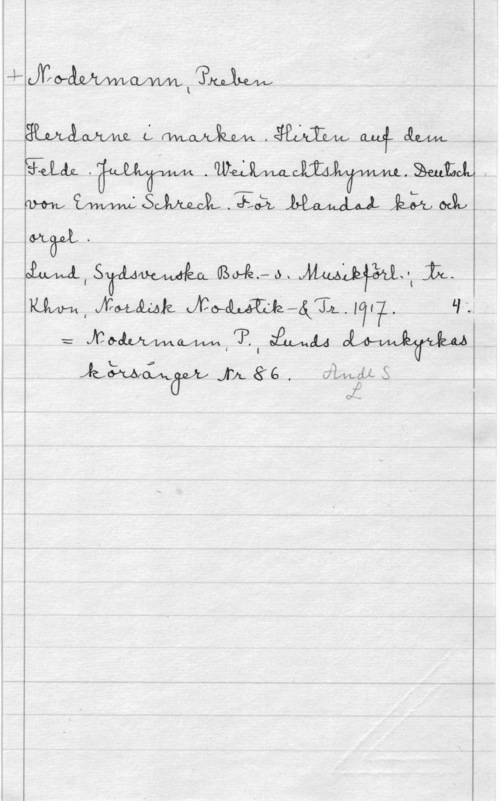 + Nodermann, Preben
Herdarne i marken. Hirten auf dem
Felde. Julhymn. Weihnachtshymne. Deutsch
von Emmi Schreck. För blandad kör och
orgel.
Lund, Sydsvenska Bok- o. Musikförl.; tr.
Khvn, Nordisk Nodestik- & Tr. 1917. 4:
= Nodermann, P., Lunds domkyrkas
körsånger Nr 86. Andl S
L